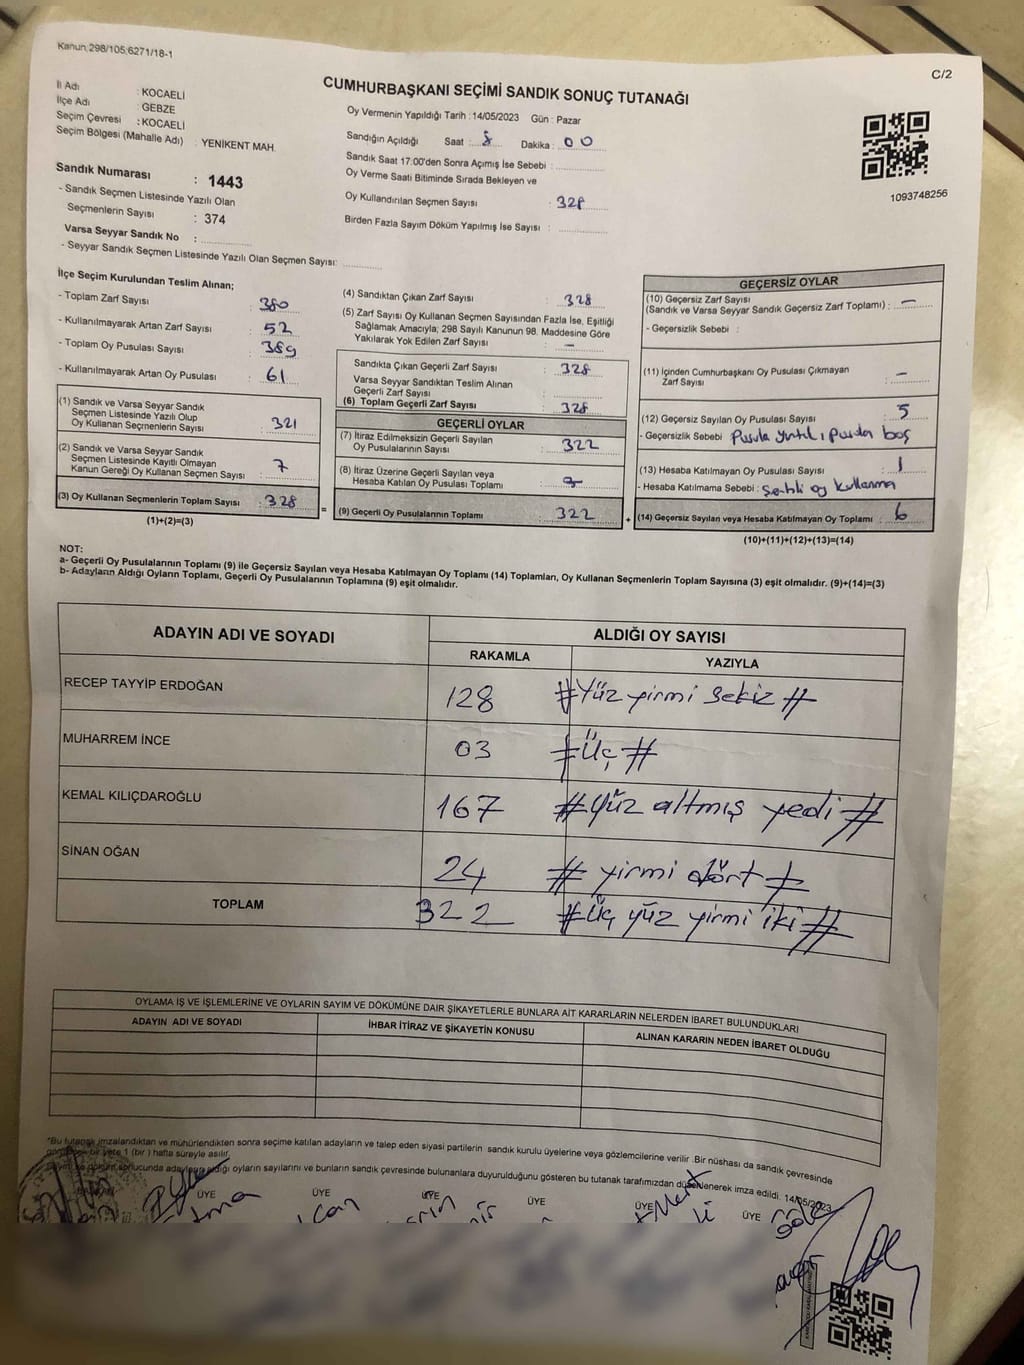 Kanun:298/105;6271/18-1
C/2
CUMHURBAŞKANI SEÇİMİ SANDIK SONUÇ TUTANAĞI
İl Adı : KOCAELİ
İlçe Adı : GEBZE
Seçim Çevresi : KOCAELİ
Seçim Bölgesi (Mahalle Adı) : YENİKENT MAH.
Sandık Numarası : 1443
- Sandık Seçmen Listesinde Yazılı Olan
Seçmenlerin Sayısı : 374
Varsa Seyyar Sandık No :
- Seyyar Sandık Seçmen Listesinde Yazılı Olan Seçmen Sayısı:
Oy Vermenin Yapıldığı Tarih : 14/05/2023 Gün : Pazar
Sandığın Açıldığı Saat : 8 Dakika : 00
Sandık Saat 17.00'den Sonra Açımış İse Sebebi :
Oy Verme Saati Bitiminde Sırada Bekleyen ve
Oy Kullandırılan Seçmen Sayısı : 328
Birden Fazla Sayım Döküm Yapılmış İse Sayısı :
1093748256
İlçe Seçim Kurulundan Teslim Alınan;
- Toplam Zarf Sayısı : 380
- Kullanılmayarak Artan Zarf Sayısı : 52
- Toplam Oy Pusulası Sayısı : 389
- Kullanılmayarak Artan Oy Pusulası : 61
(1) Sandık ve Varsa Seyyar Sandık
Seçmen Listesinde Yazılı Olup
Oy Kullanan Seçmenlerin Sayısı : 321
(2) Sandık ve Varsa Seyyar Sandık
Seçmen Listesinde Kayıtlı Olmayan
Kanun Gereği Oy Kullanan Seçmen Sayısı : 7
(3) Oy Kullanan Seçmenlerin Toplam Sayısı : 328
(1)+(2)=(3)
(4) Sandıktan Çıkan Zarf Sayısı : 328
(5) Zarf Sayısı Oy Kullanan Seçmen Sayısından Fazla İse, Eşitliği
Sağlamak Amacıyla; 298 Sayılı Kanunun 98. Maddesine Göre
Yakılarak Yok Edilen Zarf Sayısı : —
Sandıkta Çıkan Geçerli Zarf Sayısı : 328
Varsa Seyyar Sandıktan Teslim Alınan
Geçerli Zarf Sayısı :
(6) Toplam Geçerli Zarf Sayısı : 328
=
GEÇERLİ OYLAR
(7) İtiraz Edilmeksizin Geçerli Sayılan
Oy Pusulalarının Sayısı : 322
(8) İtiraz Üzerine Geçerli Sayılan veya
Hesaba Katılan Oy Pusulası Toplamı :
(9) Geçerli Oy Pusulalarının Toplamı : 322
+
GEÇERSİZ OYLAR
(10) Geçersiz Zarf Sayısı
(Sandık ve Varsa Seyyar Sandık Geçersiz Zarf Toplamı) : —
- Geçersizlik Sebebi :
(11) İçinden Cumhurbaşkanı Oy Pusulası Çıkmayan
Zarf Sayısı : —
(12) Geçersiz Sayılan Oy Pusulası Sayısı : 5
- Geçersizlik Sebebi : Pusula yırtık, pusula boş
(13) Hesaba Katılmayan Oy Pusulası Sayısı : 1
- Hesaba Katılmama Sebebi : oy kullanma
(14) Geçersiz Sayılan veya Hesaba Katılmayan Oy Toplamı : 6
(10)+(11)+(12)+(13)=(14)
NOT:
a- Geçerli Oy Pusulalarının Toplamı (9) ile Geçersiz Sayılan veya Hesaba Katılmayan Oy Toplamı (14) Toplamları, Oy Kullanan Seçmenlerin Toplam Sayısına (3) eşit olmalıdır. (9)+(14)=(3)
b- Adayların Aldığı Oyların Toplamı, Geçerli Oy Pusulalarının Toplamına (9) eşit olmalıdır.
ADAYIN ADI VE SOYADI
ALDIĞI OY SAYISI
RAKAMLA YAZIYLA
RECEP TAYYİP ERDOĞAN 128 #Yüz yirmi sekiz#
MUHARREM İNCE 03 #Üç#
KEMAL KILIÇDAROĞLU 167 #Yüz altmış yedi#
SİNAN OĞAN 24 #yirmi dört#
TOPLAM 322 #Üç yüz yirmi iki#
OYLAMA İŞ VE İŞLEMLERİNE VE OYLARIN SAYIM VE DÖKÜMÜNE DAİR ŞİKAYETLERLE BUNLARA AİT KARARLARIN NELERDEN İBARET BULUNDUKLARI
ADAYIN ADI VE SOYADI İHBAR İTİRAZ VE ŞİKAYETİN KONUSU ALINAN KARARIN NEDEN İBARET OLDUĞU
"Bu tutanak imzalandıktan ve mühürlendikten sonra seçime katılan adayların ve talep eden siyasi partilerin sandık kurulu üyelerine veya gözlemcilerine verilir .Bir nüshası da sandık çevresinde
bir yere 1 (bir ) hafta süreyle asılır.
adayların aldığı oyların sayılarını ve bunların sandık çevresinde bulunanlara duyurulduğunu gösteren bu tutanak tarafımızdan düzenlenerek imza edildi. 14/05/2023
ÜYE ÜYE ÜYE ÜYE ÜYE ÜYE